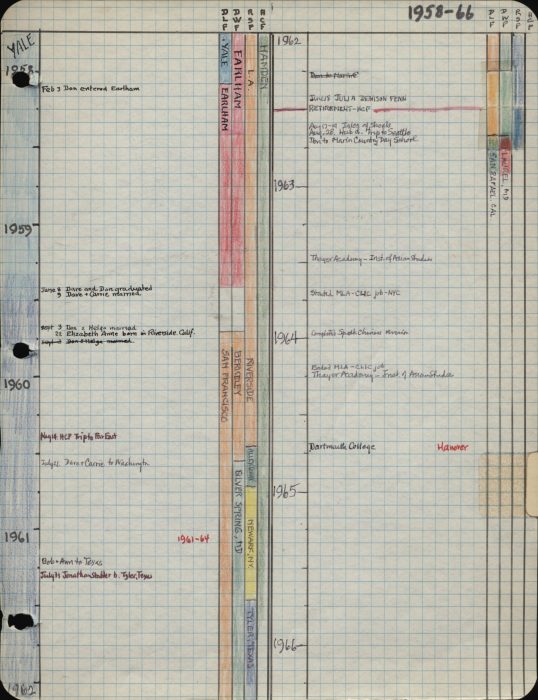 1958-66
YALE
DLF
DWF
RSF
HCF
DLF
DWF
RSF
HCF
1958
Feb 3 Don entered Earlham
1959
June 8 Dave and Don graduated
9 Dave + Carrie married
Sept 3 Don & Helga married
22 Elizabeth Anne born in Riverside, Calif.
1960
May 14 HCF Trip to Far East
July 21 Dave + Carrie to Washington
1961
1961-64
Bob + Ann to Texas
July 14 Jonathan Stadler b. Tyler, Texas
1962
YALE
EARLHAM
EARLHAM
L.A.
HAMDEN
SAN FRANCISCO
BERKELEY
RIVERSIDE
SILVER SPRING, MD
NEWARK, NY
TYLER, TEXAS
1962
JULIA DENISON FENN
RETIREMENT-HCF
Aug 17-19 Isles of Shoals
Aug. 26, H & d. Trip to Seattle
Don to Marin Country Day School
1963
SAN RAFAEL, CAL
LAUREL, MD
Thayer Academy - Inst. of Asian Studies
Started MLA-CLIC job-NYC
1964
Completed Speak Chinese revision
Ended MLA-CLIC job
Thayer Academy - Inst. of Asian Studies
Dartmouth College
Hanover
1965
1966